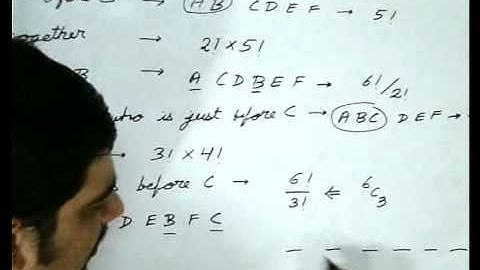 C → (A B) C D E F → 5!
together → 2! × 5!
B → A C D B E F → 6!/2!
who is just before C → (ABC) D E F →
→ 3! × 4!
before C → 6!/3! ⇐ ⁶C₃
D E B F C